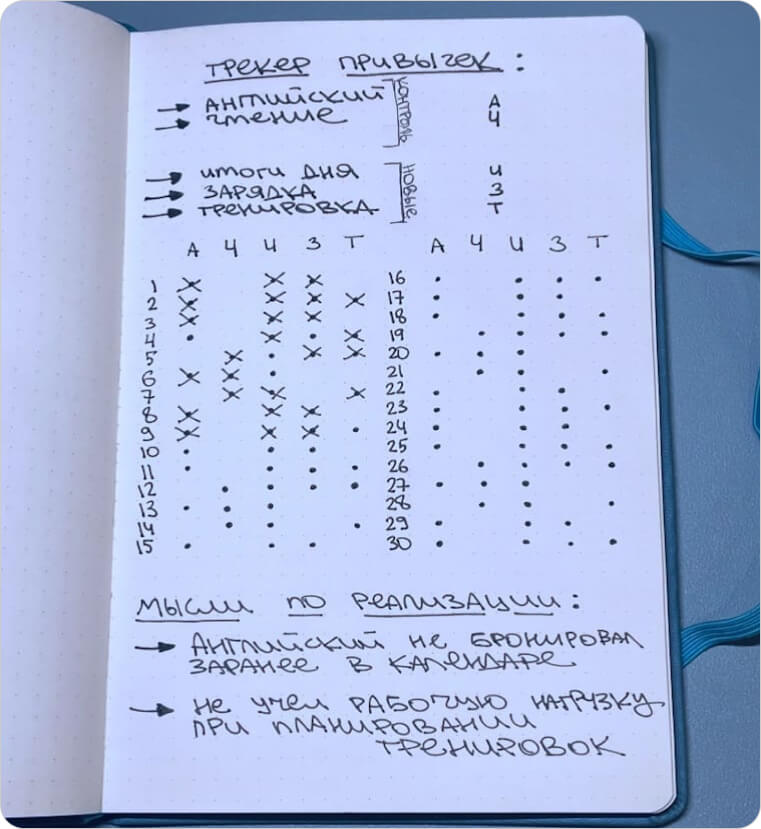 ТРЕКЕР ПРИВЫЧЕК:
→ АНГЛИЙСКИЙ КОНТРОЛЬ А
→ ЧТЕНИЕ Ч
→ ИТОГИ ДНЯ НОВЫЕ И
→ ЗАРЯДКА З
→ ТРЕНИРОВКА Т
А Ч И З Т А Ч И З Т
1 × × × 16 • • • •
2 × × × × 17 • • • •
3 × × × 18 • • • •
4 • × • × 19 • • • •
5 × • × × 20 • • •
6 × × • 21 • • •
7 × × × 22 • • •
8 × × × 23 • • • •
9 × × × • 24 • • •
10 • • • 25 • • • •
11 • • • • 26 • • • •
12 • • • • 27 • • • •
13 • • • 28 • • •
14 • • • 29 • • •
15 • • • 30 • • • •
МЫСЛИ ПО РЕАЛИЗАЦИИ:
→ АНГЛИЙСКИЙ НЕ БРОНИРОВАЛ
ЗАРАНЕЕ В КАЛЕНДАРЕ
→ НЕ УЧЕЛ РАБОЧУЮ НАГРУЗКУ
ПРИ ПЛАНИРОВАНИИ
ТРЕНИРОВОК